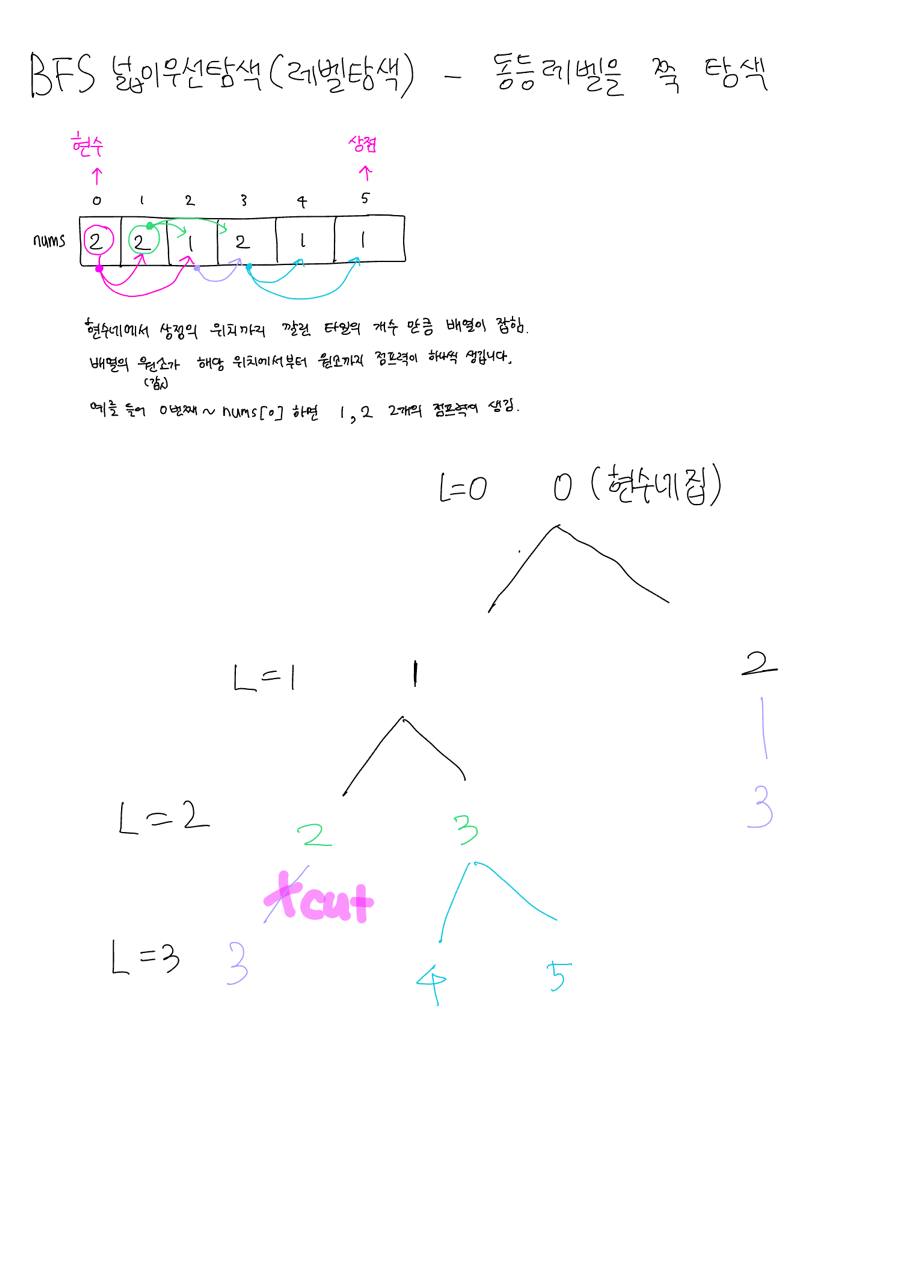 BFS 넓이우선탐색(레벨탐색) - 동등레벨을 쭉 탐색
현수 상점
0 1 2 3 4 5
nums 2 2 1 2 1 1
현수네에서 상점의 위치까지 깔린 타일의 개수 만큼 배열이 잡힘.
배열의 원소가 해당 위치에서부터 원소까지 점프력이 하나씩 생깁니다.
(값)
예를 들어 0번째~nums[0] 하면 1, 2 2개의 점프력이 생김.
L=0 0 (현수네집)
L=1 1 2
L=2 2 3 3
cut
L=3 3 4 5